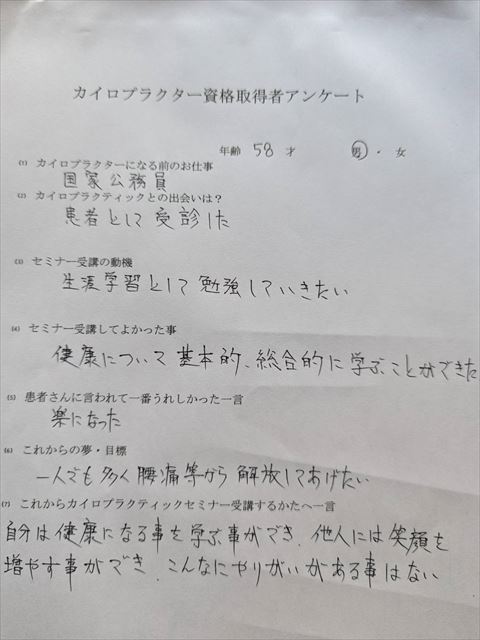 カイロプラクター資格取得者アンケート
年齢 58 才 男 ・ 女
(1) カイロプラクターになる前のお仕事
国家公務員
(2) カイロプラクティックとの出会いは?
患者として受診した
(3) セミナー受講の動機
生涯学習として勉強していきたい
(4) セミナー受講してよかった事
健康について基本的、総合的に学ぶことができた
(5) 患者さんに言われて一番うれしかった一言
楽になった
(6) これからの夢・目標
一人でも多く腰痛等から解放してあげたい
(7) これからカイロプラクティックセミナー受講するかたへ一言
自分は健康になる事を学ぶ事ができ、他人には笑顔を
増やす事ができ、こんなにやりがいがある事はない